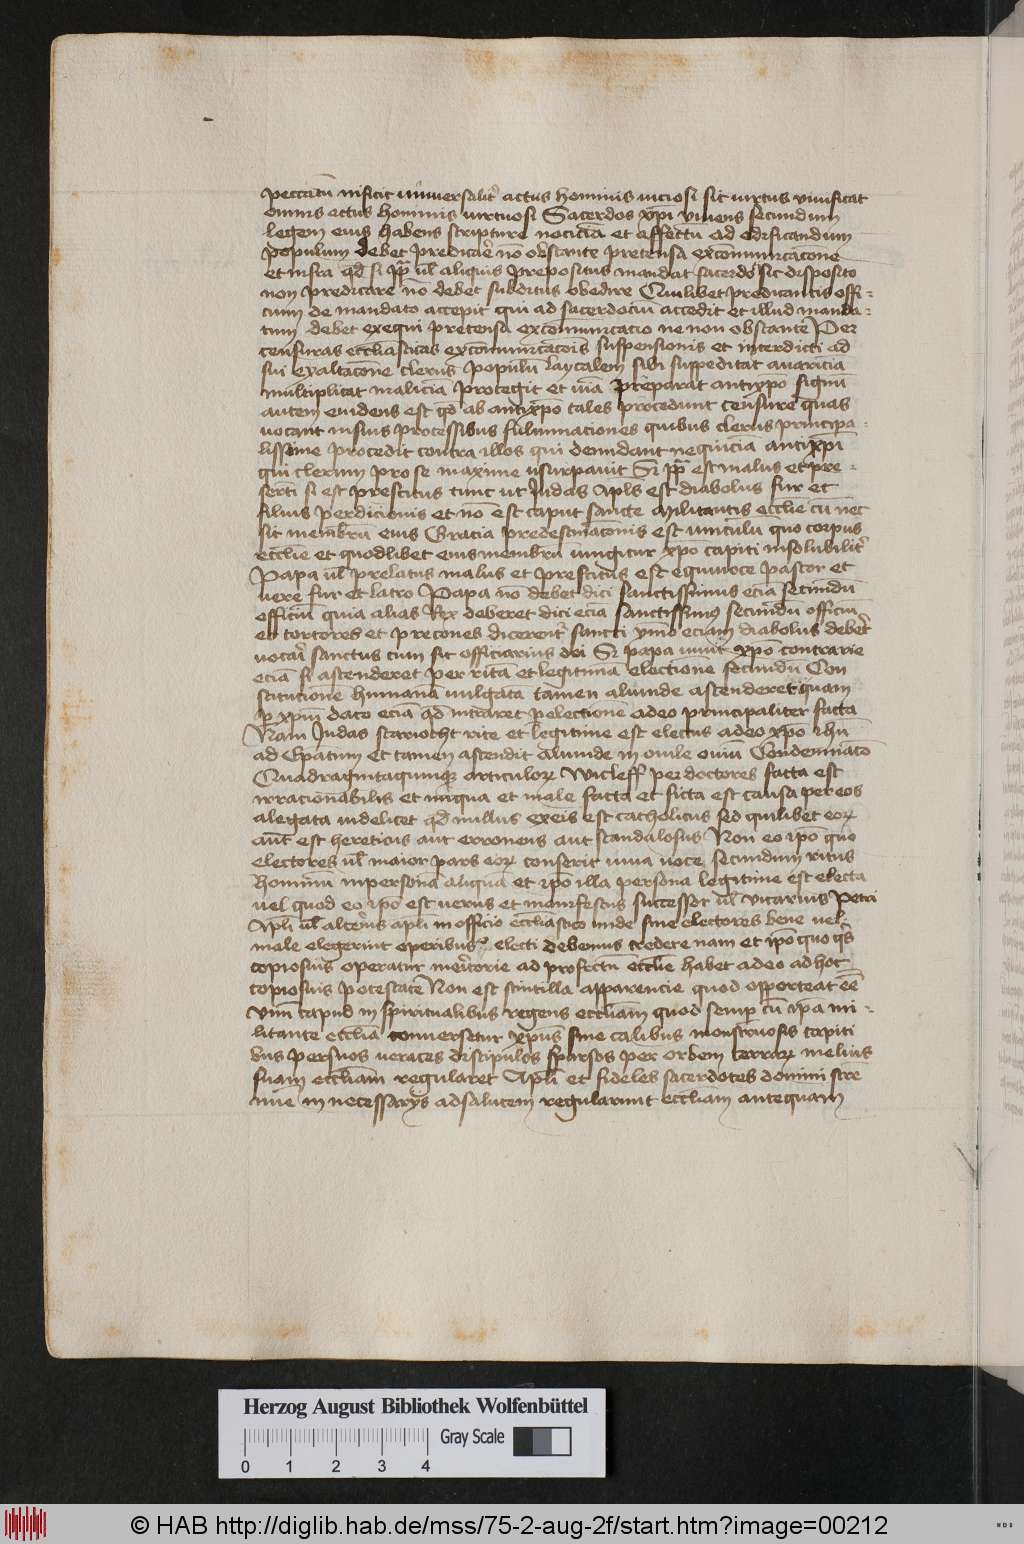 peccatū inficit uniuersalit̉ actus hominis uiciosi sic uirtus viuificat
omnes actus hominis uirtuosi Sacerdos xp̄i viuens secundum
legem eius habens scripture noticiā et affectū ad edificandum
populum debet predicar̉ nō obstante pretensa excōmunicacōne
et infra qd̄ si pp̄ ul̄ aliquis prepositus mandat sacerdo᷑ sic disposito
non predicare nō debet subditus obedire Quilibet predicantis offi-
cium de mandato accepit qui ad sacerdociū accedit et illud manda-
tum debet exequi pretensa excōmunicacio ne non obstante Per
censuras ecclīasticas excōmunicacōis suspensionis et interdicti ad
sui exaltacōne clerus populū laycalem sibi suppeditat auariciā
multiplicat maliciā protegit et uiā preparat antixpō signū
autem euidens est qd̄ ab antixpō tales procedunt censure quas
uocant in suis processibus fulminaciones quibus clerus principa-
lissime procedit contra illos qui denudant nequiciā antixpī
qui clerum pro se maxime usurpauit Si pp̄ est malus et pre-
serti si est prescitus tunc ut Judas apls̄ est diabolus fur et
filius perdicionis et nō est caput sancte militantis ecclīe cū nec
sit membrū eius Gracia predestinacōnis est uinculū quo corpus
ecclīe et quodlibet eius membrū iungitur xp̄o capiti insolubilit̉
Papa ul̄ prelatus malus et prescitus est equiuoce pastor et
uere fur et latro Papa nō debet dici sanctissimus eciā secundū
officiū quia alias Rex deberet dici eciā sanctissimus secundū officiū
et tortores et precones dicerent̉ sancti ymō eciam diabolus deber̉
uocar̉ sanctus cum sit officiarius dei Si papa uiuit xp̄o contrarie
eciā si ascenderet per ritā et legitimā electione secundū Con
stitucione humanā uulgatā tamen aliunde ascenderet quam
p xp̄m dato eciā qd̄ intraret p electionē a deo principaliter facta
Nam Judas scarioth rite et legitime est electus a deo xp̄o ihū
ad Ep̄atum et tamen ascendit aliunde in ouile ouiū Condemnacō
Quadragintaquinqꝫ articuloꝝ Wicleff per doctores facta est
irracionabilis et iniqua et male facta et ficta est causa per eos
alegata uidelicet qd̄ nullus ex eis est catholicus sed quilibet eoꝝ
aut̄ est hereticus aut erroneus aut scandalosus Non eo ip̄o quo
electores ul̄ maior pars eoꝝ conserit uiua uoce secundum ritus
hominū in personā aliquā et ip̄o illa persona legitime est electa
uel quod eo ip̄o est uerus et manifestus successor ul̄ vicarius Petri
Apl̄i ul̄ alterius apl̄i in officio ecclīastico unde siue electores bene uel
male elegerint operibus electi debemus credere nam et ip̄o quo q̄s
copiosius operatur meritorie ad profectū ecclīe habet a deo ad hoc
copiosius potestatē Non est scintilla apparencie quod opporteat eē
vnū capud in spiritualibus regens ecclīam quod semp cū ip̄a mi-
litante ecclīā conuersetur xp̄us sine talibus monstruosis capiti
bus per suos ueraces discipulos sparsos per orbem terraꝝ melius
suam ecclīam regularet Apl̄i et fideles sacerdotes domini stre
nue in necessarijs ad salutem regularunt eccliam antequam
Herzog August Bibliothek Wolfenbüttel
Gray Scale
0 1 2 3 4
© HAB http://diglib.hab.de/mss/75-2-aug-2f/start.htm?image=00212